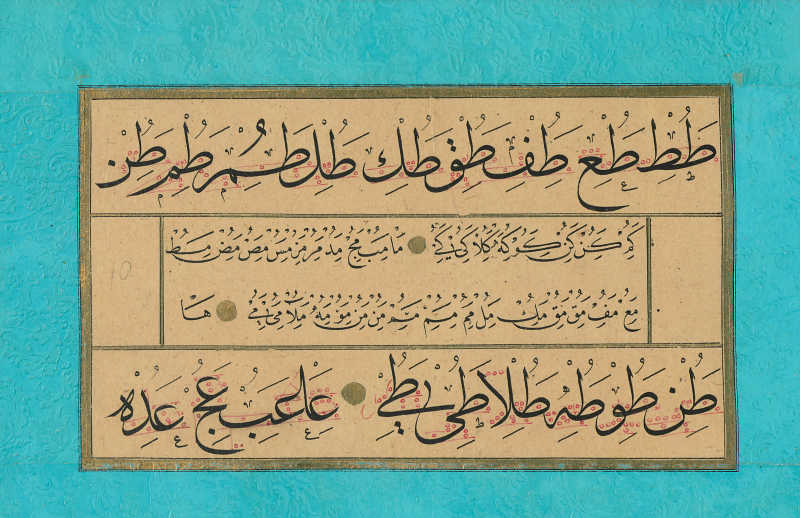 طط طع طف طق طك طل طم طم طن
كم كن كن كو كه كلا كى كى ما مب مج مد مر مر مس مص مص مط
مع مف مق مق مك مل مم مم مم من من مو مه ملا مى مى ها
طن طو طه طلا طى طى عا عب عج عد ه